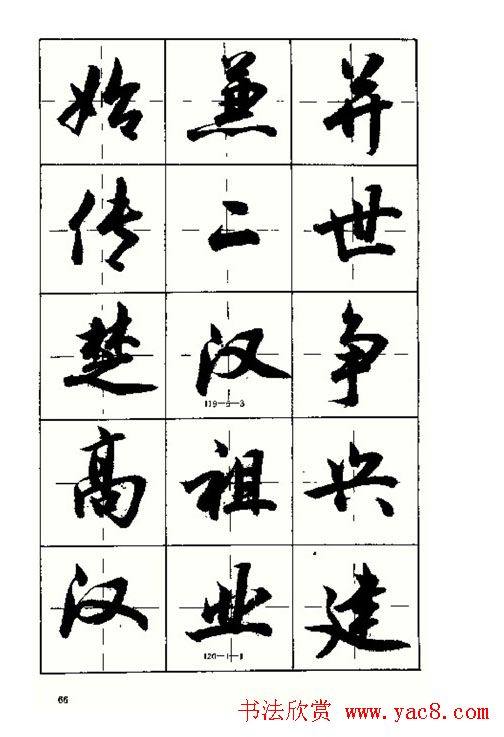 始 兼 并
传 二 世
楚 汉 争
高 祖 兴
汉 业 建
120—1—1
66
书法欣赏 www.yac8.com